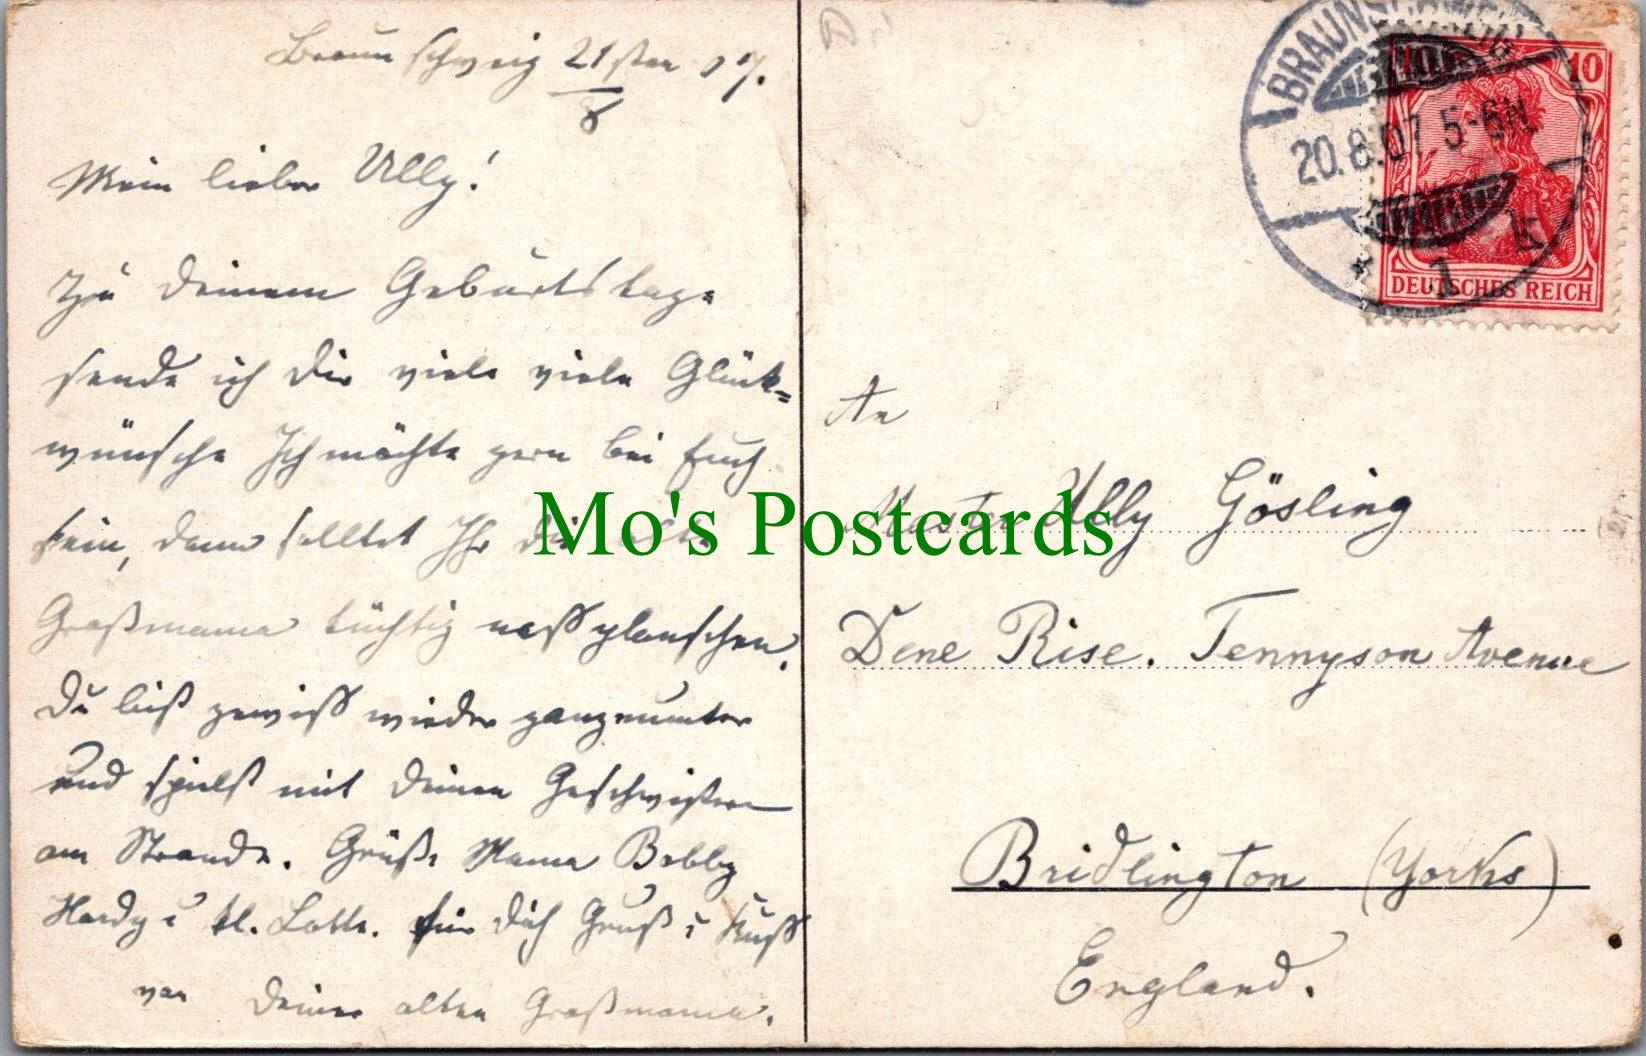 Braunschweig 21sten 07.
8
Mein lieber Ully!
Zu deinem Geburtstage
sende ich Dir viele viele Glück=
wünsche Ich möchte gern bei Euch
sein, dann solltet Ihr die alte
Großmama tüchtig naßplanschen.
Du bist gewiß wieder ganz munter
und spielst mit Deinen Geschwistern
am Strande. Grüße Mama Bobby
Hardy u kl. Lotte. Für Dich Gruß u Kuß
von Deiner alten Großmama.
BRAUNSCHWEIG
20.8.07. 5-6N.
* 1 k
10 10
DEUTSCHES REICH
An
Master Ully Gösling
Dene Rise. Tennyson Avenue
Bridlington (Yorks)
England.
Mo's Postcards